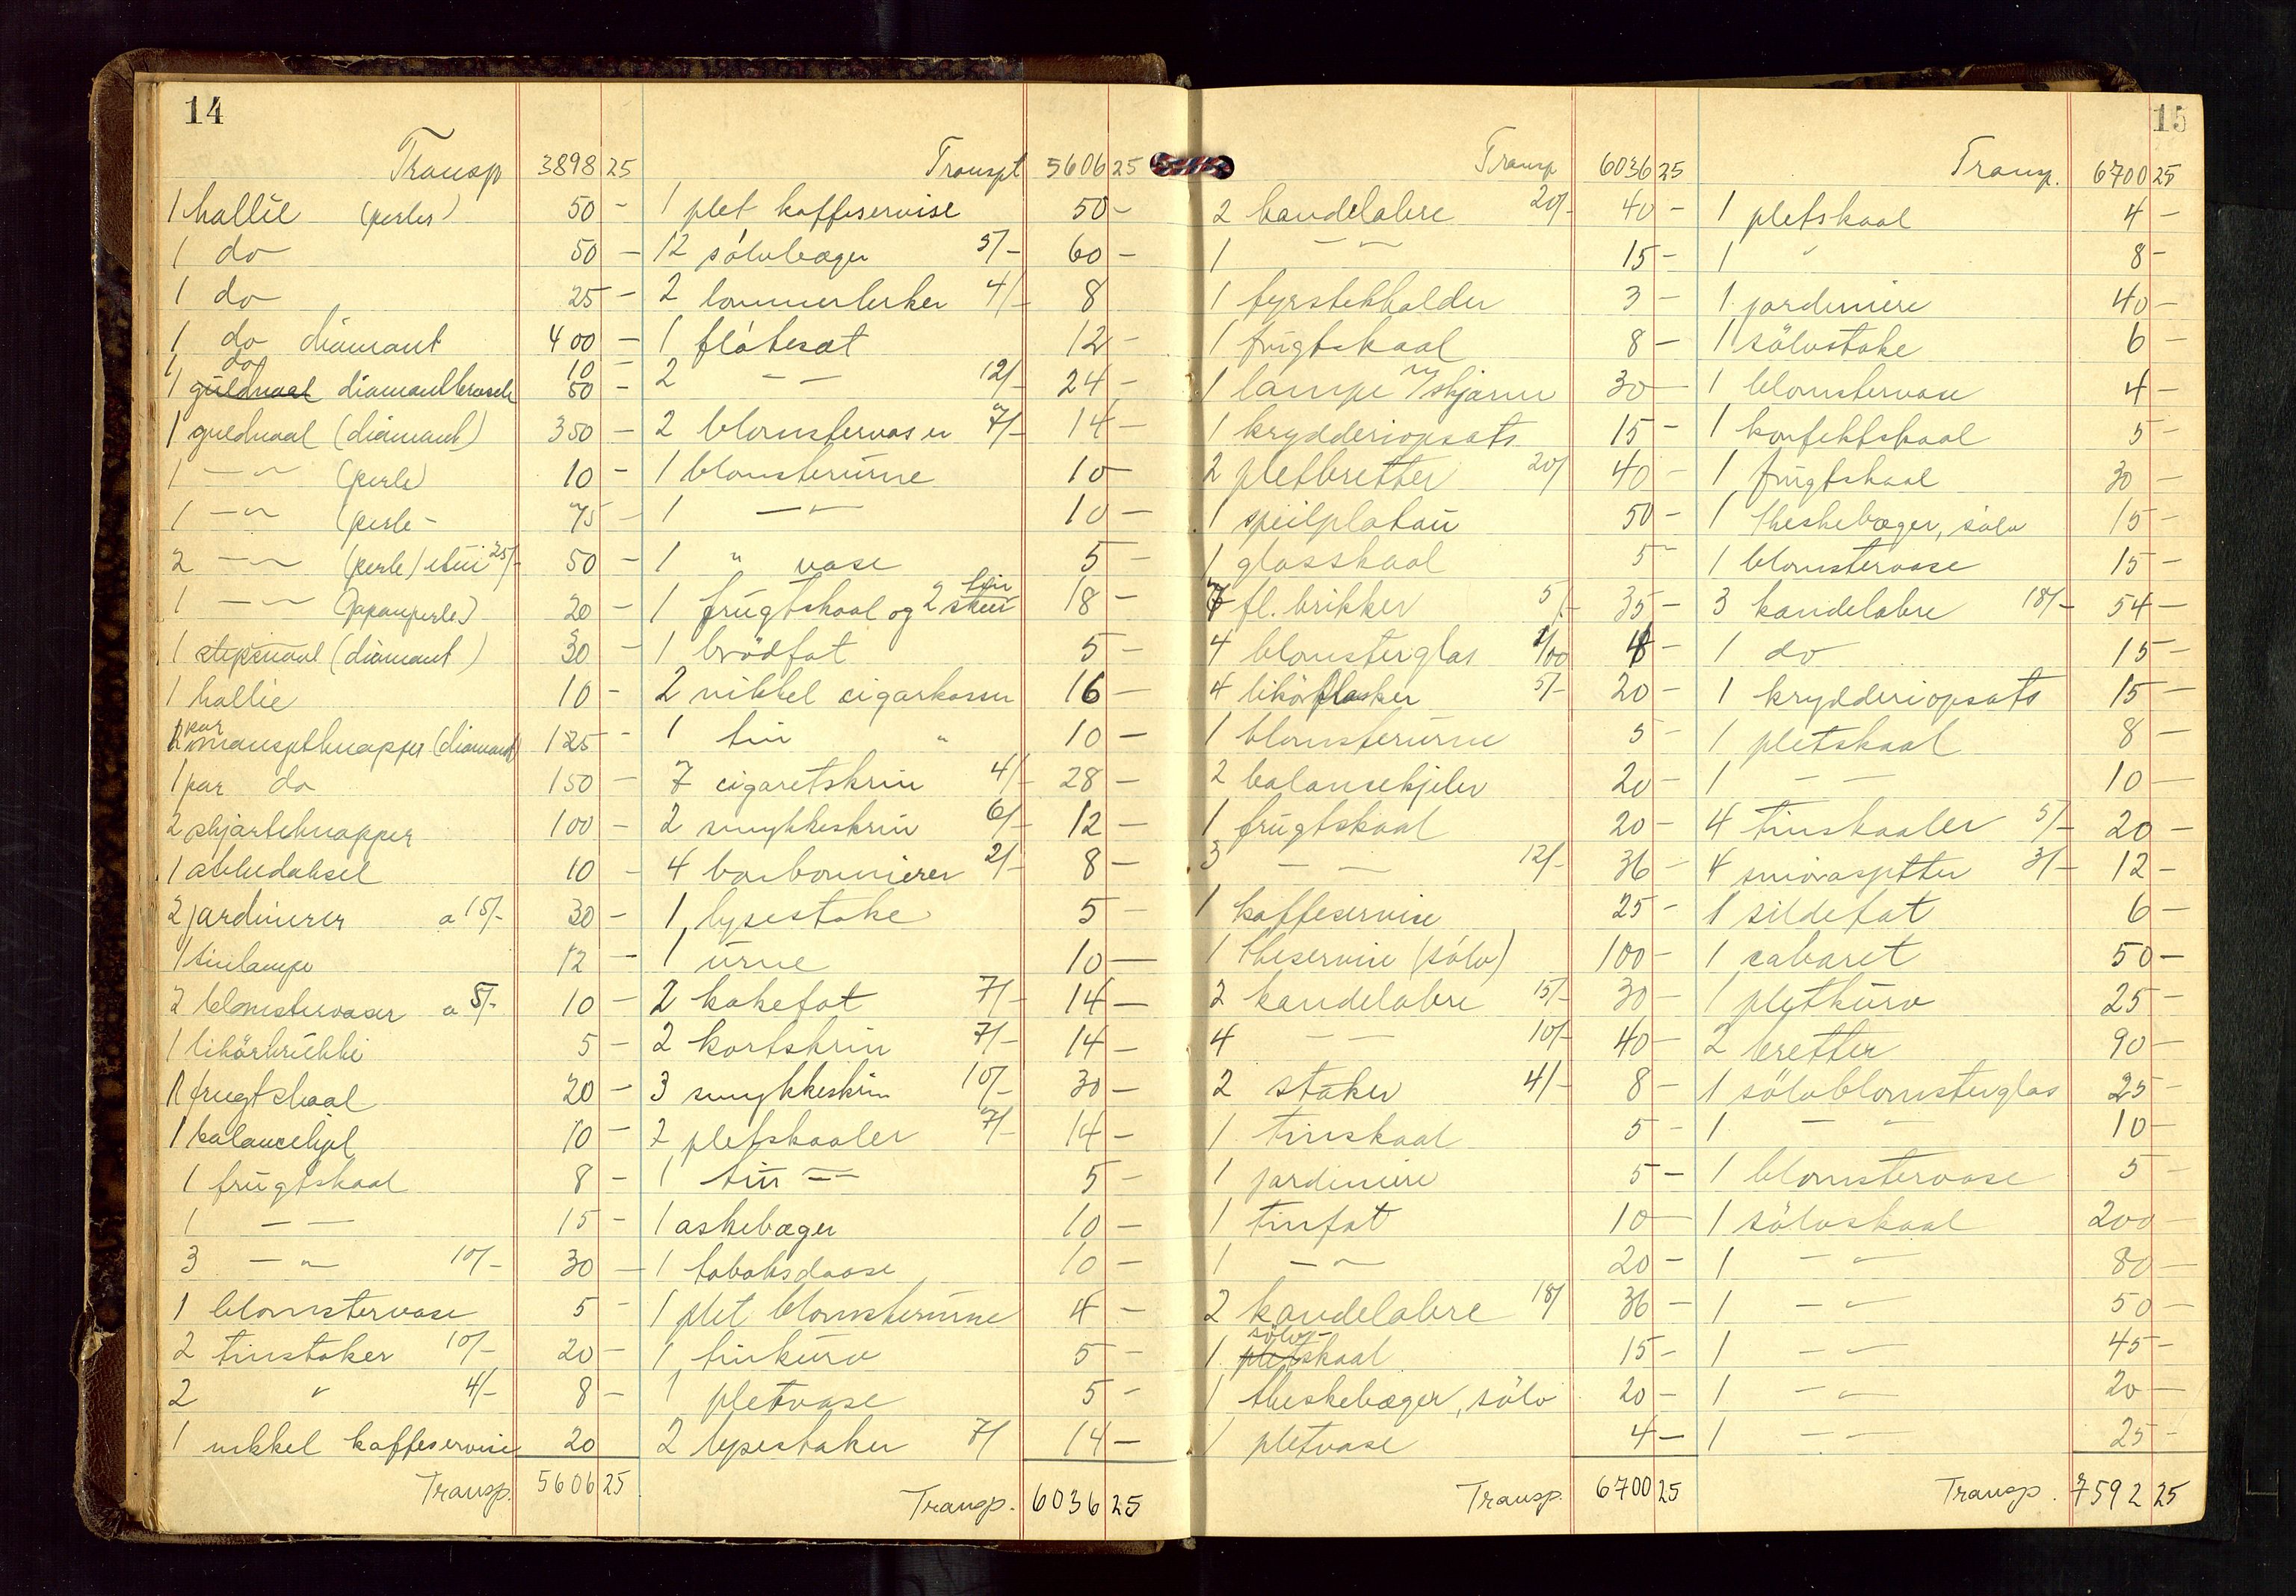 14
Transp 3898 25
1 hallie (perler) 50 -
1 do 50 -
1 do 25 -
1 do diamant 400 -
1 do 10 -
1 guldnaal diamantbrosch 50 -
1 guldnaal (diamant) 350 -
1 — " — (perle) 10 -
1 — " — (perle - 75 -
2 — " — (perle) etui 25/- 50 -
1 — " — (Japanperle) 20 -
1 (diamant) 30 -
1 hallie 10 -
1 par mansjetknapper (diamant) 125 -
1 par do 150 -
2 skjorteknapper 100 -
1 10 -
2 jardinierer a 15/- 30 -
1 tinlampe 12 -
2 blomstervaser a 5/- 10 -
1 likörbrikke 5 -
1 frugtskaal 20 -
1 balancekjel 10 -
1 frugtskaal 8 -
1 — — 15 -
3 — " — 10/- 30 -
1 blomstervase 5 -
2 tinstaker 10/- 20 -
2 " 4/- 8 -
1 nikkel kaffeservise 20
Transp. 5606 25
Transpt 5606 25
1 plet kaffeservise 50 -
12 sölvbæger 5/- 60 -
2 lommerlerker 4/- 8
1 flötesæt 12 -
2 — — 12/- 24 -
2 blomstervaser 7/- 14 -
1 blomsterurne 10 -
1 — " — 10 -
1 " vase 5 -
1 frugtskaal og 2 tin 18 -
1 brödfat 5 -
2 nikkel cigarkasser 16 -
1 tin " 10 -
7 cigaretskrin 4/- 28 -
2 smykkeskrin 6/- 12 -
4 bonbonnierer 2/- 8 -
1 lysestake 5 -
1 urne 10 -
2 kakefat 7/- 14 -
2 kortskrin 7/- 14 -
3 smykkeskrin 10/- 30 -
2 pletskaaler 7/- 14 -
1 tin — — 5 -
1 askebæger 10 -
1 tobaksdaase 10 -
1 plet blomsterurne 4 -
1 tinkurv 5 -
1 pletvase 5 -
2 lysestaker 7/ 14 -
Transp. 6036 25
Transp 6036 25
2 kandelabre 20/- 40 -
1 — " — 15 -
1 fyrstekholder 3 -
1 frugtskaal 8 -
1 lampe m/skjærm 30 -
1 krydderiopsats 15 -
2 pletbretter 20/ 40 -
1 speilplatau 50 -
1 glasskaal 5 -
7 fl. brikker 5/- 35 -
4 blomsterglas 1/00 4 -
4 likörflasker 5/- 20 -
1 blomsterurne 5 -
2 balansekjeler 20 -
1 frugtskaal 20 -
3 — — 12/- 36 -
1 kaffeservise 25 -
1 theservise (sölv) 100 -
2 kandelabre 15/- 30 -
4 — — 10/- 40 -
2 staker 4/- 8 -
1 tinskaal 5 -
1 jardiniere 5 -
1 tinfat 10 -
1 — " — 20 -
2 kandelabre 18/ 36 -
1 sölv- pletskaal 15 -
1 theskebæger, sölv 20 -
1 pletvase 4 -
Transp. 6700 25
15
Transp. 6700 25
1 pletskaal 4 -
1 " 8 -
1 jardiniere 40 -
1 sölvstake 6 -
1 blomstervase 4 -
1 konfektskaal 5 -
1 frugtskaal 30 -
1 theskebæger, sölv 15 -
1 blomstervase 15 -
3 kandelabre 18/- 54 -
1 do 15 -
1 krydderiopsats 15 -
1 pletskaal 8 -
1 — — 10 -
4 tinskaaler 5/- 20 -
4 smörasjetter 3/- 12 -
1 sildefat 6 -
1 cabaret 50 -
1 pletkurv 25 -
2 bretter 90 -
1 sölvblomsterglas 25 -
1 — " 10 -
1 blomstervase 5 -
1 sölvskaal 200 -
1 — " 80 -
1 — " 50 -
1 — " 45 -
1 — " 20 -
1 — — 25 -
Transp. 7592 25